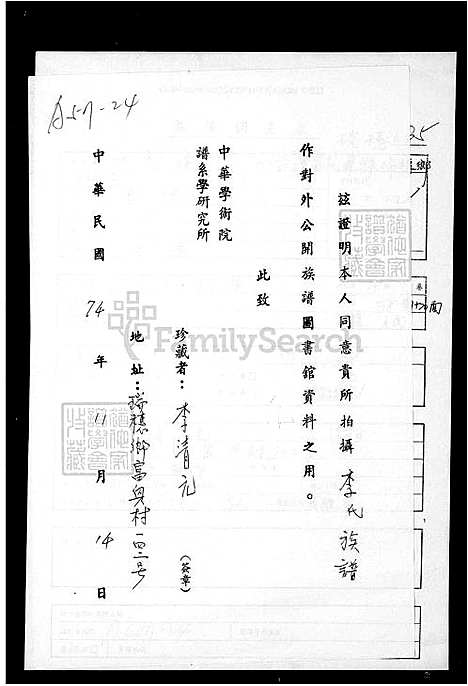 A57-24
茲證明本人同意貴所拍攝李氏族譜
作對外公開族譜圖書館資料之用。
此致
中華學術院
譜系學研究所
珍藏者：李清元（簽章）
地址：瑞穗鄉富興村一四二號
中華民國74年11月14日
35
鄉
FamilySearch